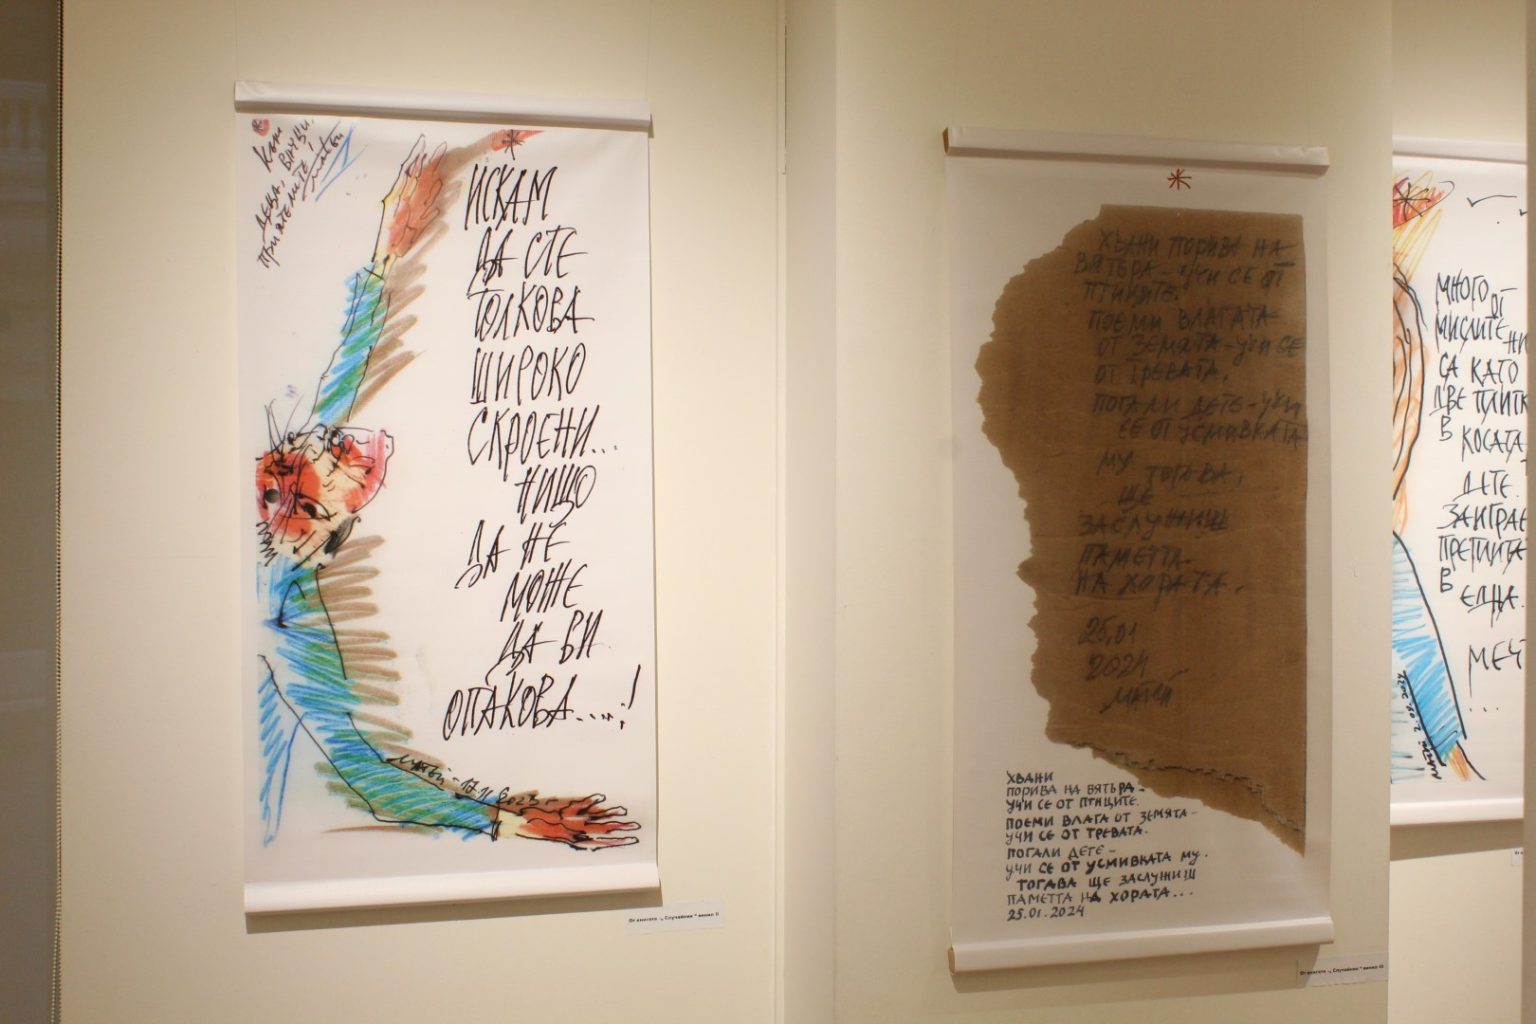 Към
деца, внуци,
приятелите!
ИСКАМ
ДА СТЕ
ТОЛКОВА
ШИРОКО
СКРОЕНИ...
НИЩО
ДА НЕ
МОЖЕ
ДА ВИ
ОПАКОВА.....!
МАТЕЙ - 17.11.2023
От книгата -„ Случайник "
ХВАНИ ПОРИВА НА
ВЯТЪРА - УЧИ СЕ ОТ
ПТИЦИТЕ.
ПОЕМИ ВЛАГАТА
ОТ ЗЕМЯТА - УЧИ СЕ
ОТ ТРЕВАТА.
ПОГАЛИ ДЕТЕ - УЧИ
СЕ ОТ УСМИВКАТА
МУ
ТОГАВА,
ЩЕ
ЗАСЛУЖИШ
ПАМЕТТА
НА ХОРАТА.
25.01
2024
МАТЕЙ
ХВАНИ
ПОРИВА НА ВЯТЪРА -
УЧИ СЕ ОТ ПТИЦИТЕ.
ПОЕМИ ВЛАГА ОТ ЗЕМЯТА -
УЧИ СЕ ОТ ТРЕВАТА.
ПОГАЛИ ДЕТЕ -
УЧИ СЕ ОТ УСМИВКАТА МУ.
ТОГАВА ЩЕ ЗАСЛУЖИШ
ПАМЕТТА НА ХОРАТА...
25.01.2024
От книгата -„ Случайник "
МНОГО ОТ
МИСЛИТЕ НИ
СА КАТО
ДВЕ ПЛИТК
В КОСАТА
ДЕТЕ.
ЗАИГРАЕ
ПРЕПЛИТЕ
В ЕДНА.
МЕЧ
...
МАТЕЙ 2.08.2024